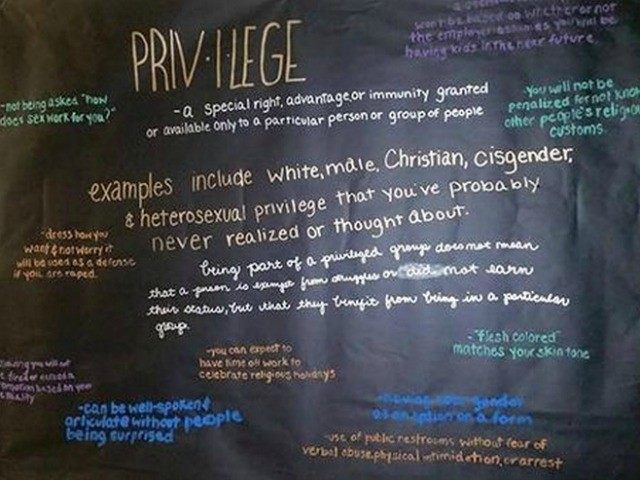 won't be based on whether or not
the employer assumes you will be
having kids in the near future.
PRIV·I·LEGE
-a special right, advantage, or immunity granted
or available only to a particular person or group of people
-not being asked "how
does sex work for you?"
You will not be
penalized for not know
other people's religi
customs.
examples include white, male, Christian, cisgender,
& heterosexual privilege that you've probably
never realized or thought about.
-dress how you
want & not worry it
will be used as a defense
if you are raped.
being part of a privileged group does not mean
that a person is exempt from struggles or did not earn
their status, but that they benefit from being in a particular
group.
-"flesh colored"
matches your skin tone
-you can expect to
have time off work to
celebrate religious holidays
-can be well-spoken &
articulate without people
being surprised
-having your gender
as an option on a form
-use of public restrooms without fear of
verbal abuse, physical intimidation, or arrest